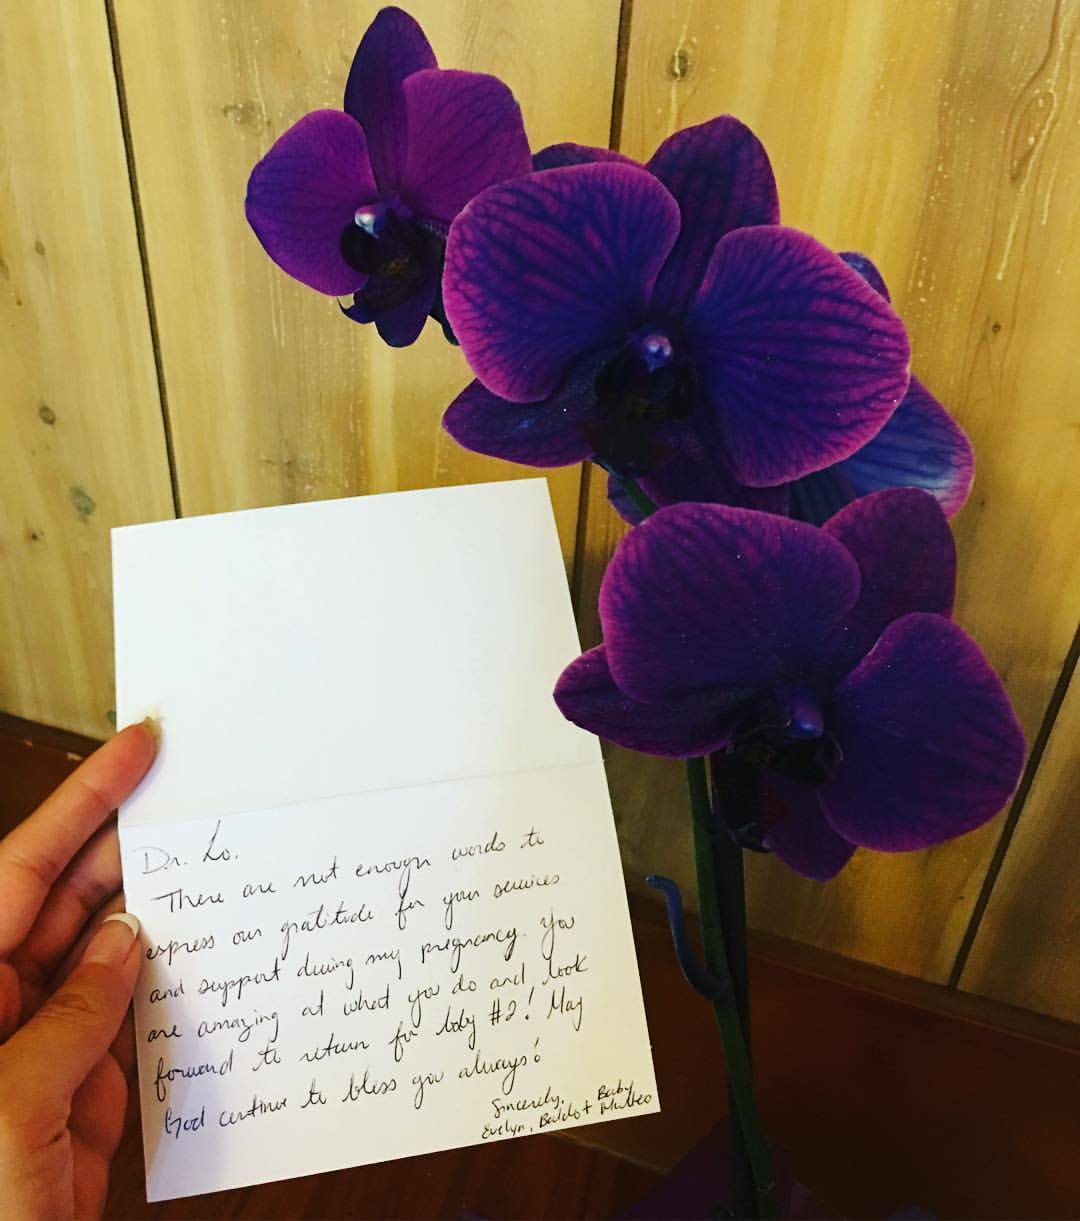 Dr. Lo.
There are not enough words to
express our gratitude for your services
and support during my pregnancy. You
are amazing at what you do and look
forward to return for baby #2! May
God continue to bless you always!
Sincerely,
Evelyn, + Baby Matteo